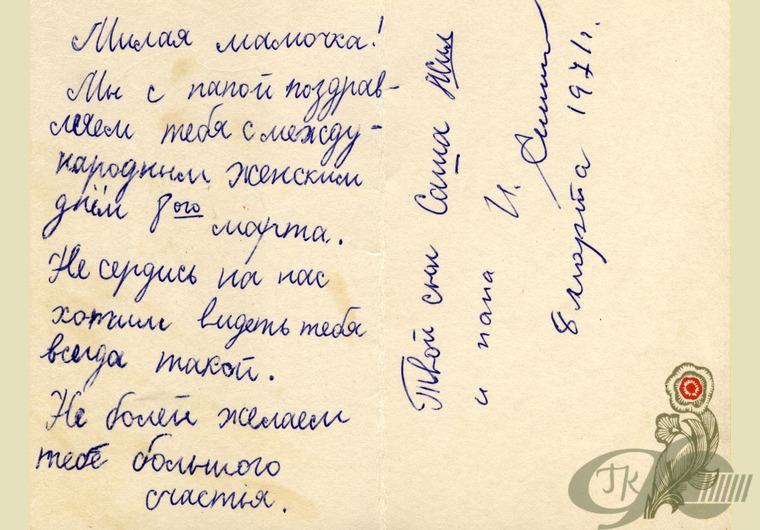 Милая мамочка!
Мы с папой поздрав-
ляем тебя с между-
народным женским
днём 8ого марта.
Не сердись на нас
хотим видеть тебя
всегда такой.
Не болей желаем
тебе большого
счастья.
Твой сын Саша
и папа И.
8 марта 1971г.
ГК